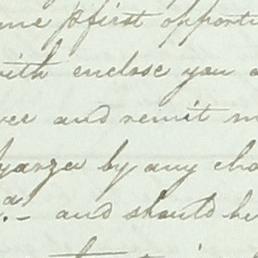 me p first opportu
with enclose you a
ver and remit m
yarza by any cha
a.— and should he